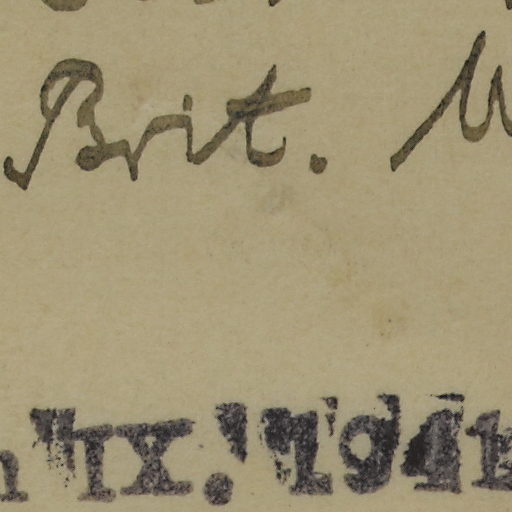 Brit. M
IX. 1941